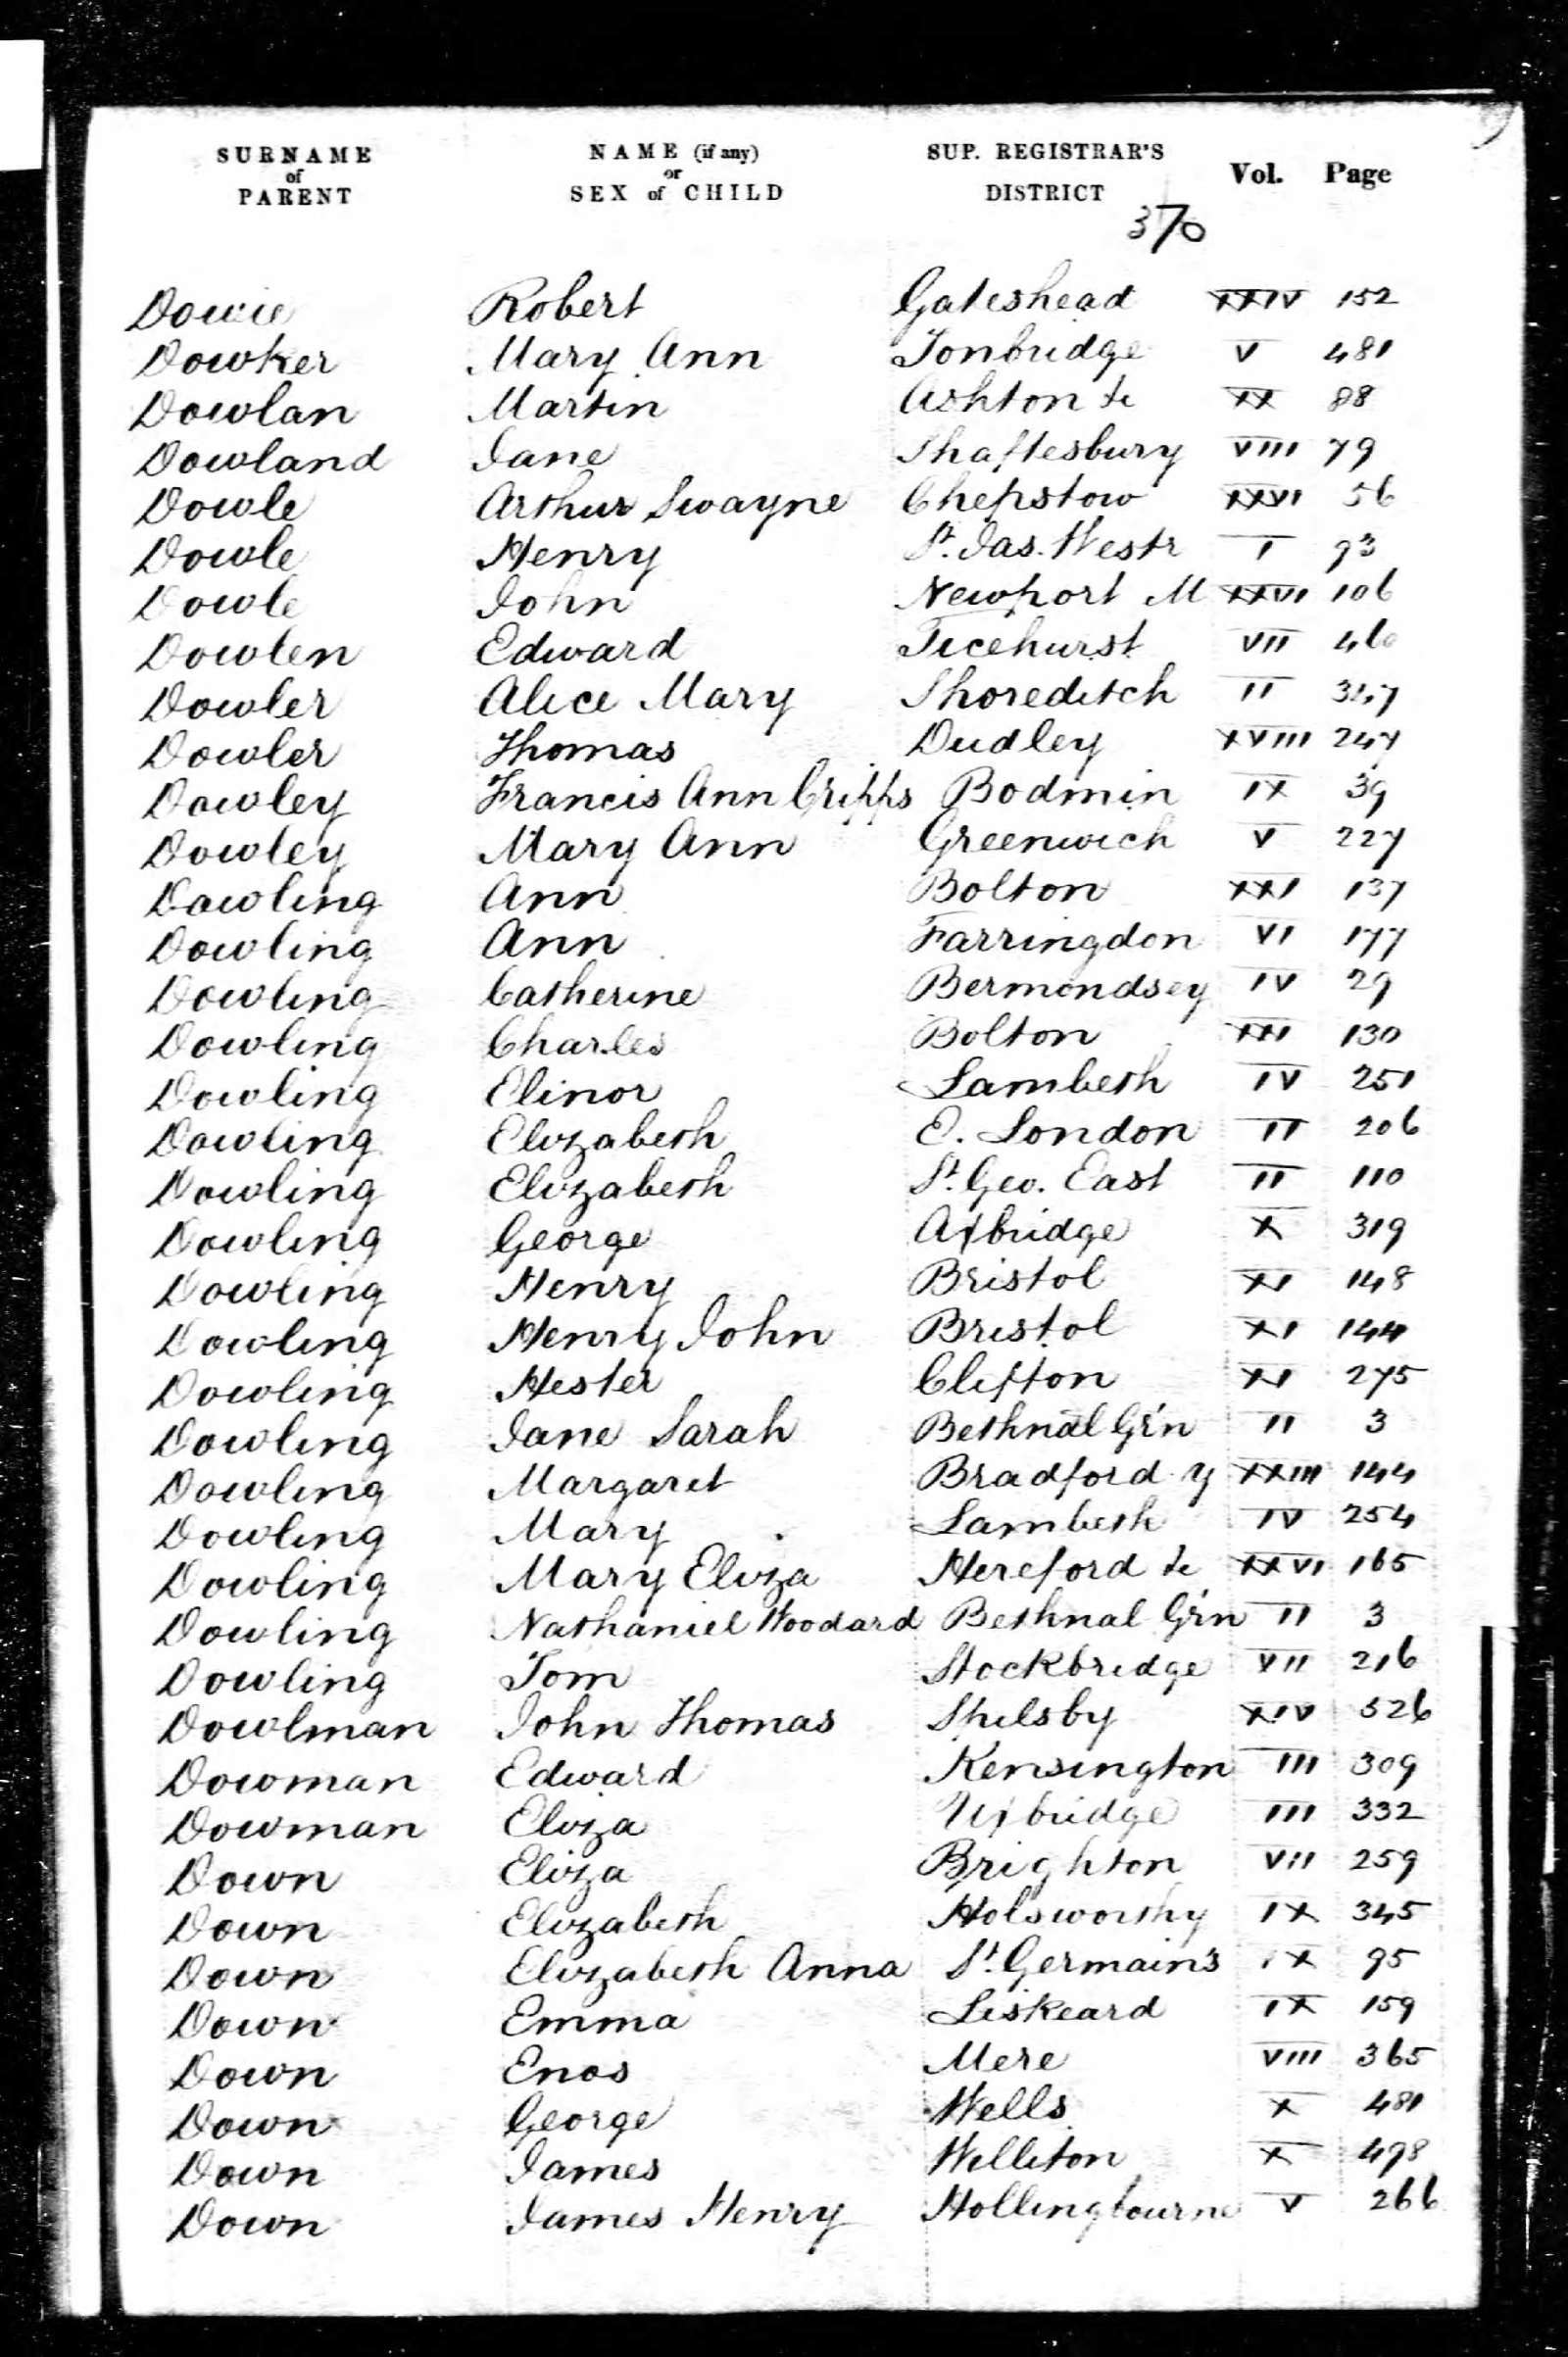 SURNAME of PARENT NAME (if any) or SEX of CHILD SUP. REGISTRAR'S DISTRICT Vol. Page
370
Dowie Robert Gateshead XXIV 152
Dowker Mary Ann Tonbridge V 481
Dowlan Martin Ashton &c XX 88
Dowland Jane Shaftesbury VIII 79
Dowle Arthur Swayne Chepstow XXVI 56
Dowle Henry St. Jas. Westr I 93
Dowle John Newport M XXVI 106
Dowlen Edward Ticehurst VII
Dowler Alice Mary Shoreditch II 347
Dowler Thomas Dudley XVIII 247
Dowley Francis Ann Cripps Bodmin IX 39
Dowley Mary Ann Greenwich V 227
Dowling Ann Bolton XXI 137
Dowling Ann Farringdon VI 177
Dowling Catherine Bermondsey IV 29
Dowling Charles Bolton XXI 130
Dowling Elinor Lambeth IV 251
Dowling Elizabeth E. London II 206
Dowling Elizabeth St. Geo. East II 110
Dowling George Axbridge X 319
Dowling Henry Bristol XI 148
Dowling Henry John Bristol XI 144
Dowling Hester Clifton XI 275
Dowling Jane Sarah Bethnal Gr'n II 3
Dowling Margaret Bradford Y XXIII 144
Dowling Mary Lambeth IV 254
Dowling Mary Eliza Hereford &c XXVI 165
Dowling Nathaniel Woodard Bethnal Gr'n II 3
Dowling Tom Stockbridge VII 216
Dowlman John Thomas Spilsby XIV 526
Dowman Edward Kensington III 309
Dowman Eliza Uxbridge III 332
Down Eliza Brighton VII 259
Down Elizabeth Holsworthy IX 345
Down Elizabeth Anna St. Germain's IX 95
Down Emma Liskeard IX 159
Down Enos Mere VIII 365
Down George Wells X 481
Down James Williton X 498
Down James Henry Hollingbourne V 266